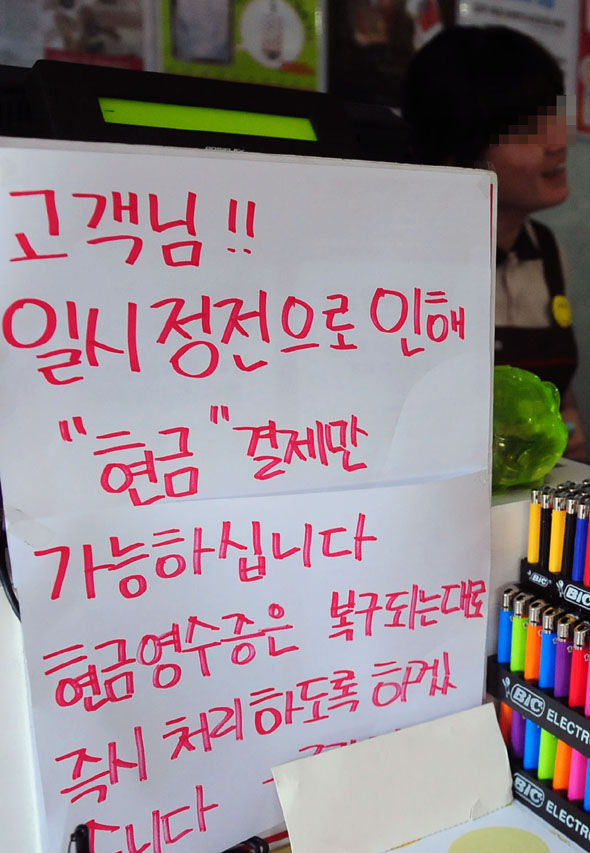 고객님!!
일시정전으로 인해
"현금" 결제만
가능하십니다
현금영수증은 복구되는대로
즉시 처리하도록 하겠
습니다
BIC
BIC
BIC ELECTRO
BIC ELECTRO